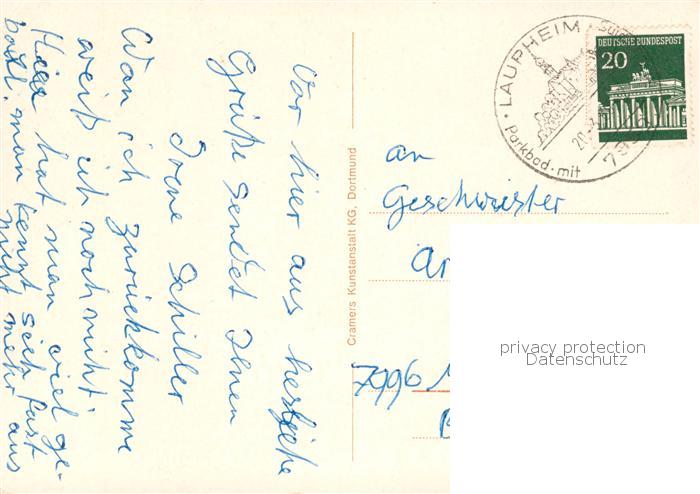 Vor hier aus herzliche
Grüße sendet Ihnen
Irene Schiller
Wan ich zurückkomme
weiß ich noch nicht.
Hier hat man viel ge-
baut, man kennt sich fast
nicht mehr aus
Cramers Kunstanstalt KG, Dortmund
LAUPHEIM
Parkbad · mit
DEUTSCHE BUNDESPOST
20
an
Geschwister
7996
privacy protection
Datenschutz